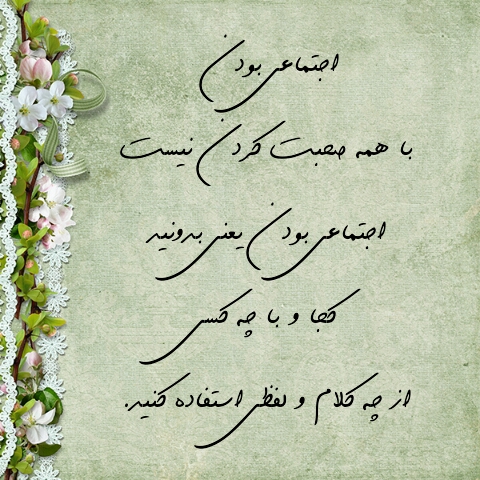 اجتماعی بودن
با همه صحبت کردن نیست
اجتماعی بودن یعنی بدونید
کجا و با چه کسی
از چه کلام و لفظی استفاده کنید.